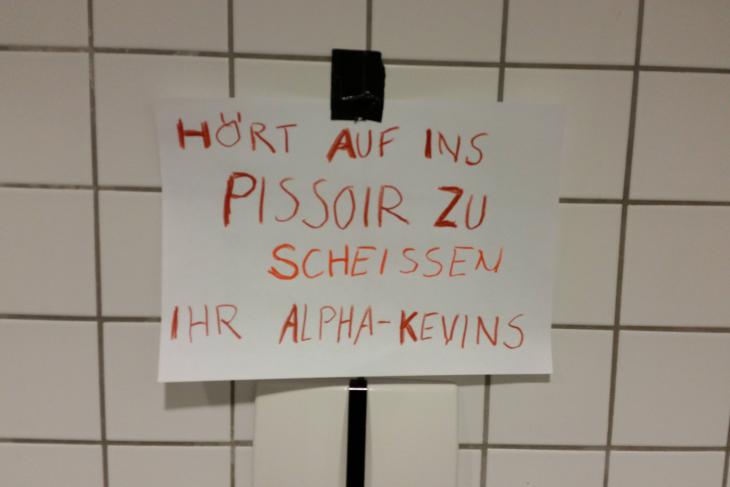 HÖRT AUF INS
PISSOIR ZU
SCHEISSEN
IHR ALPHA-KEVINS